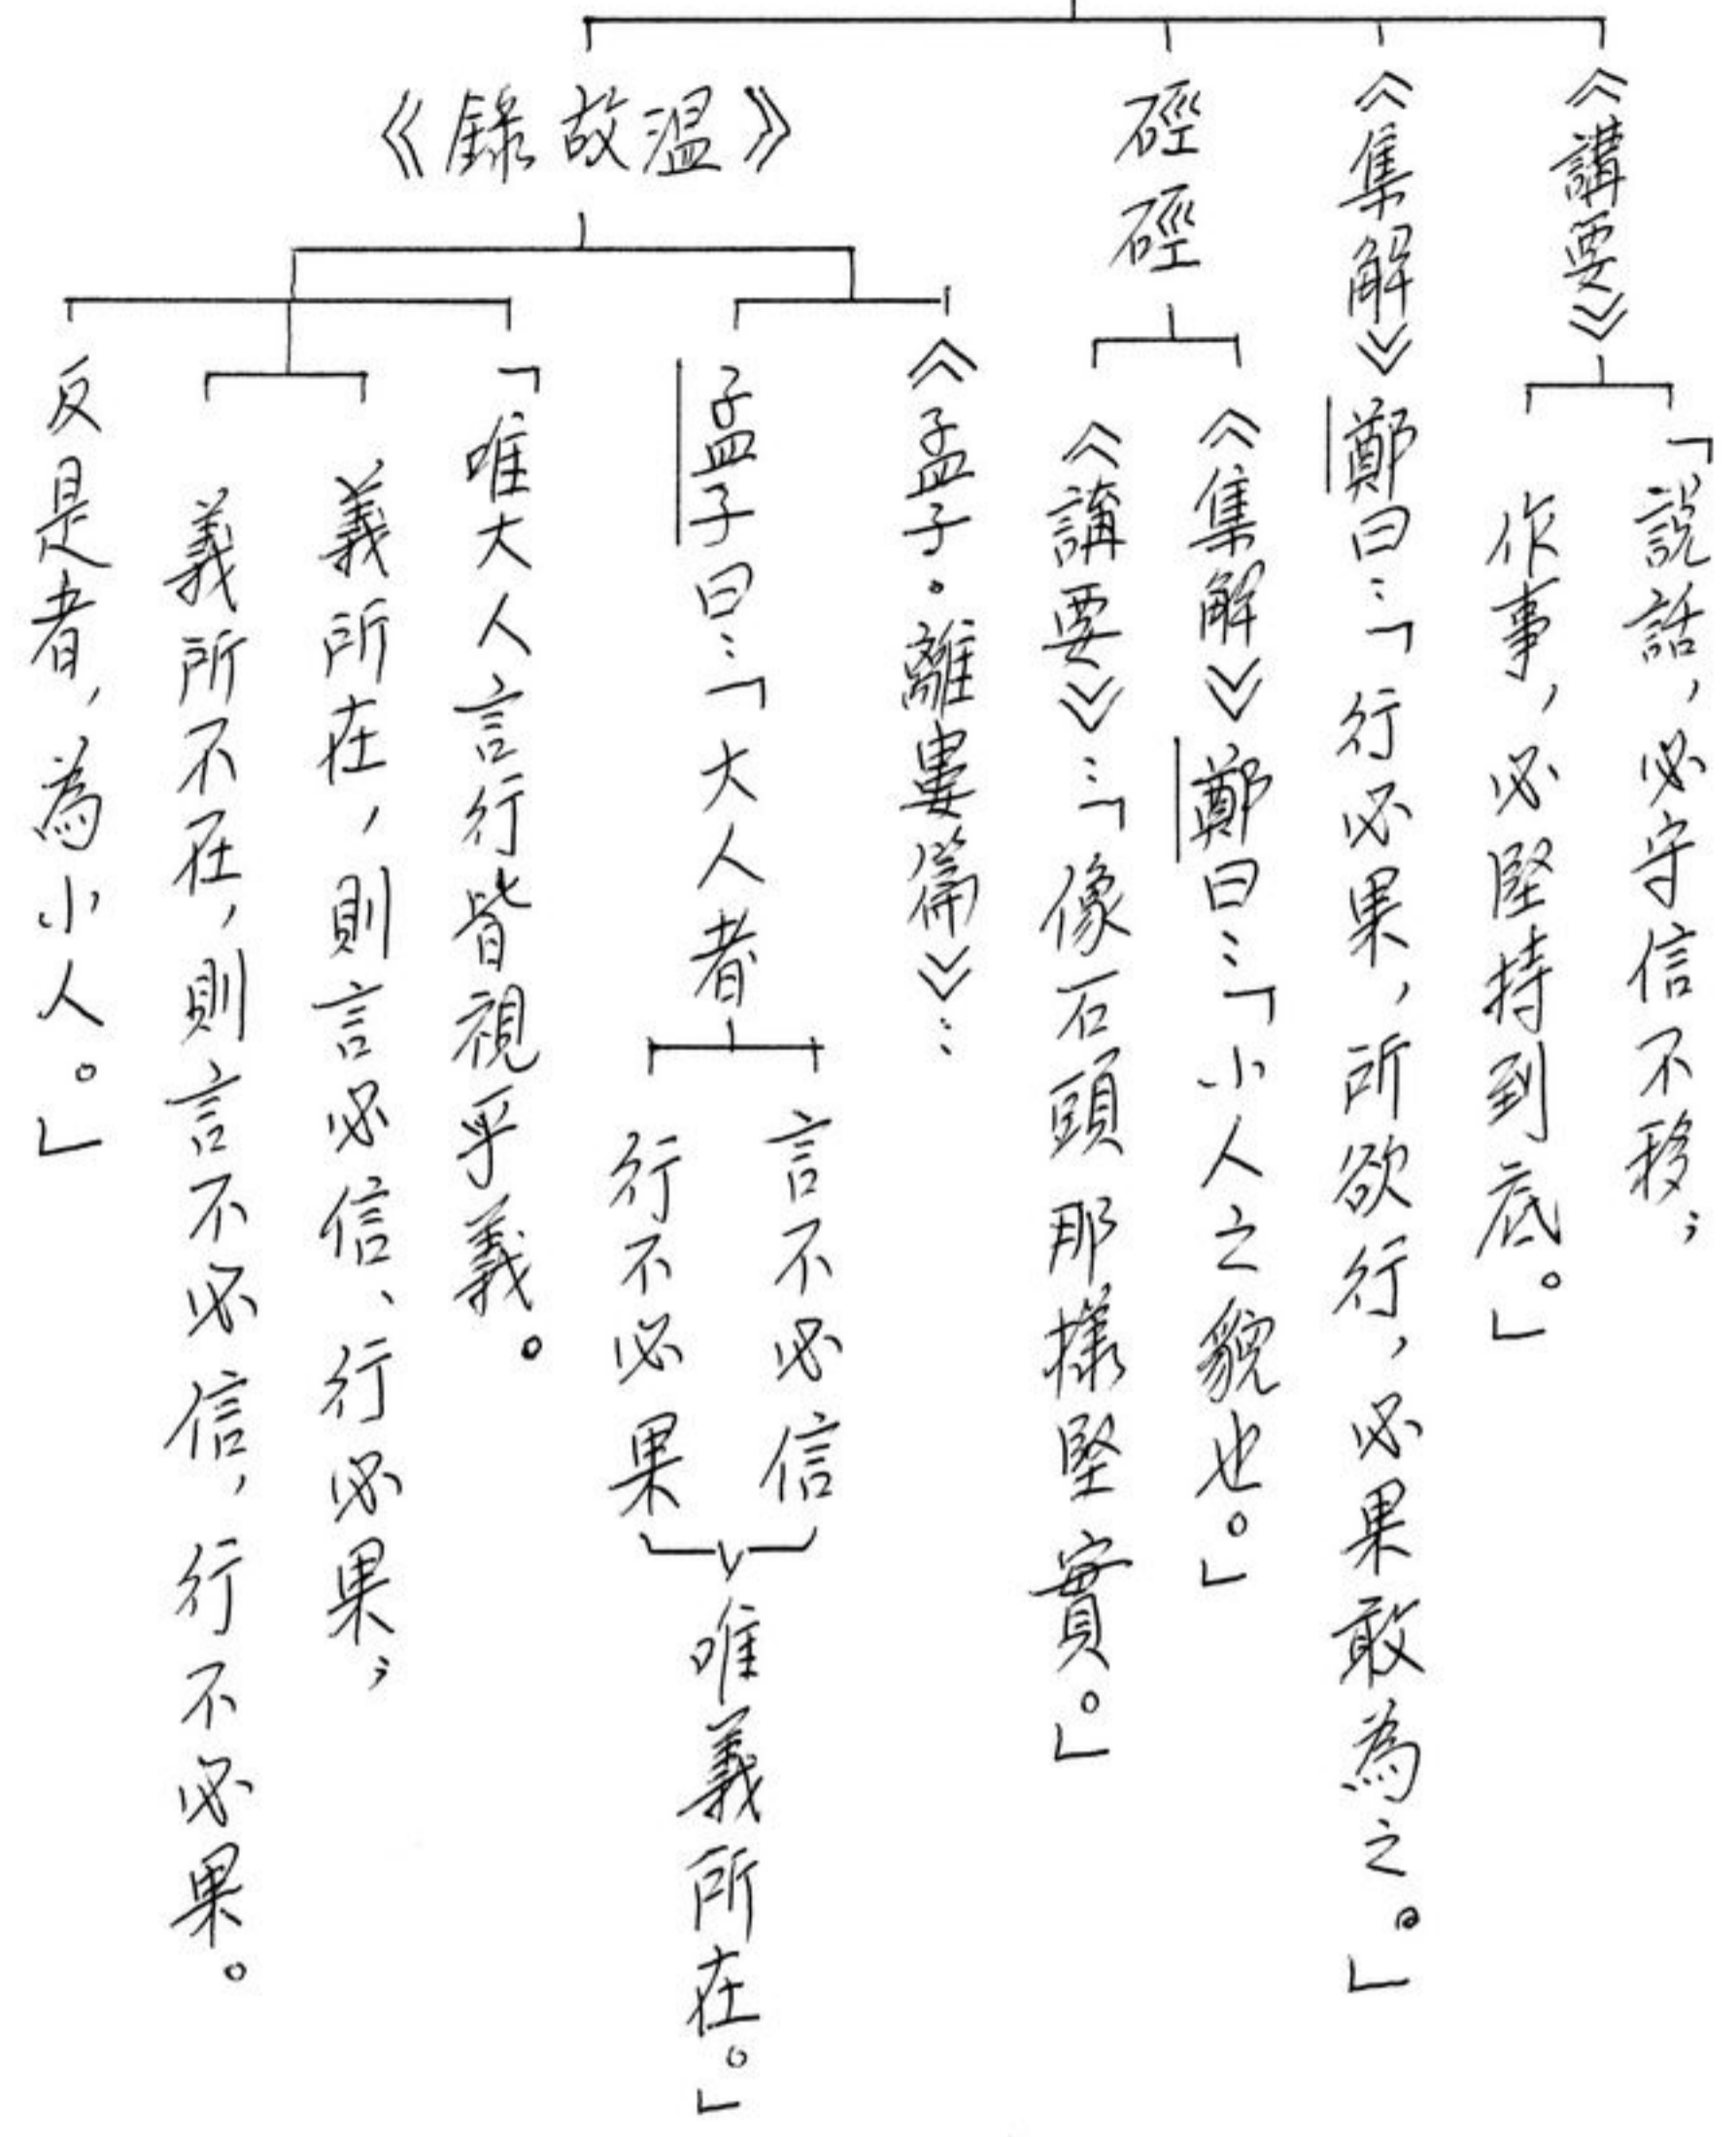 《講要》
「說話，必守信不移；
作事，必堅持到底。」
《集解》鄭曰：「行必果，所欲行，必果敢為之。」
硜硜
《集解》鄭曰：「小人之貌也。」
《講要》：「像石頭那樣堅實。」
《溫故錄》
《孟子．離婁篇》：
孟子曰：「大人者
言不必信
行不必果
唯義所在。」
「唯大人言行皆視乎義。
義所在，則言必信、行必果；
義所不在，則言不必信，行不必果。
反是者，為小人。」